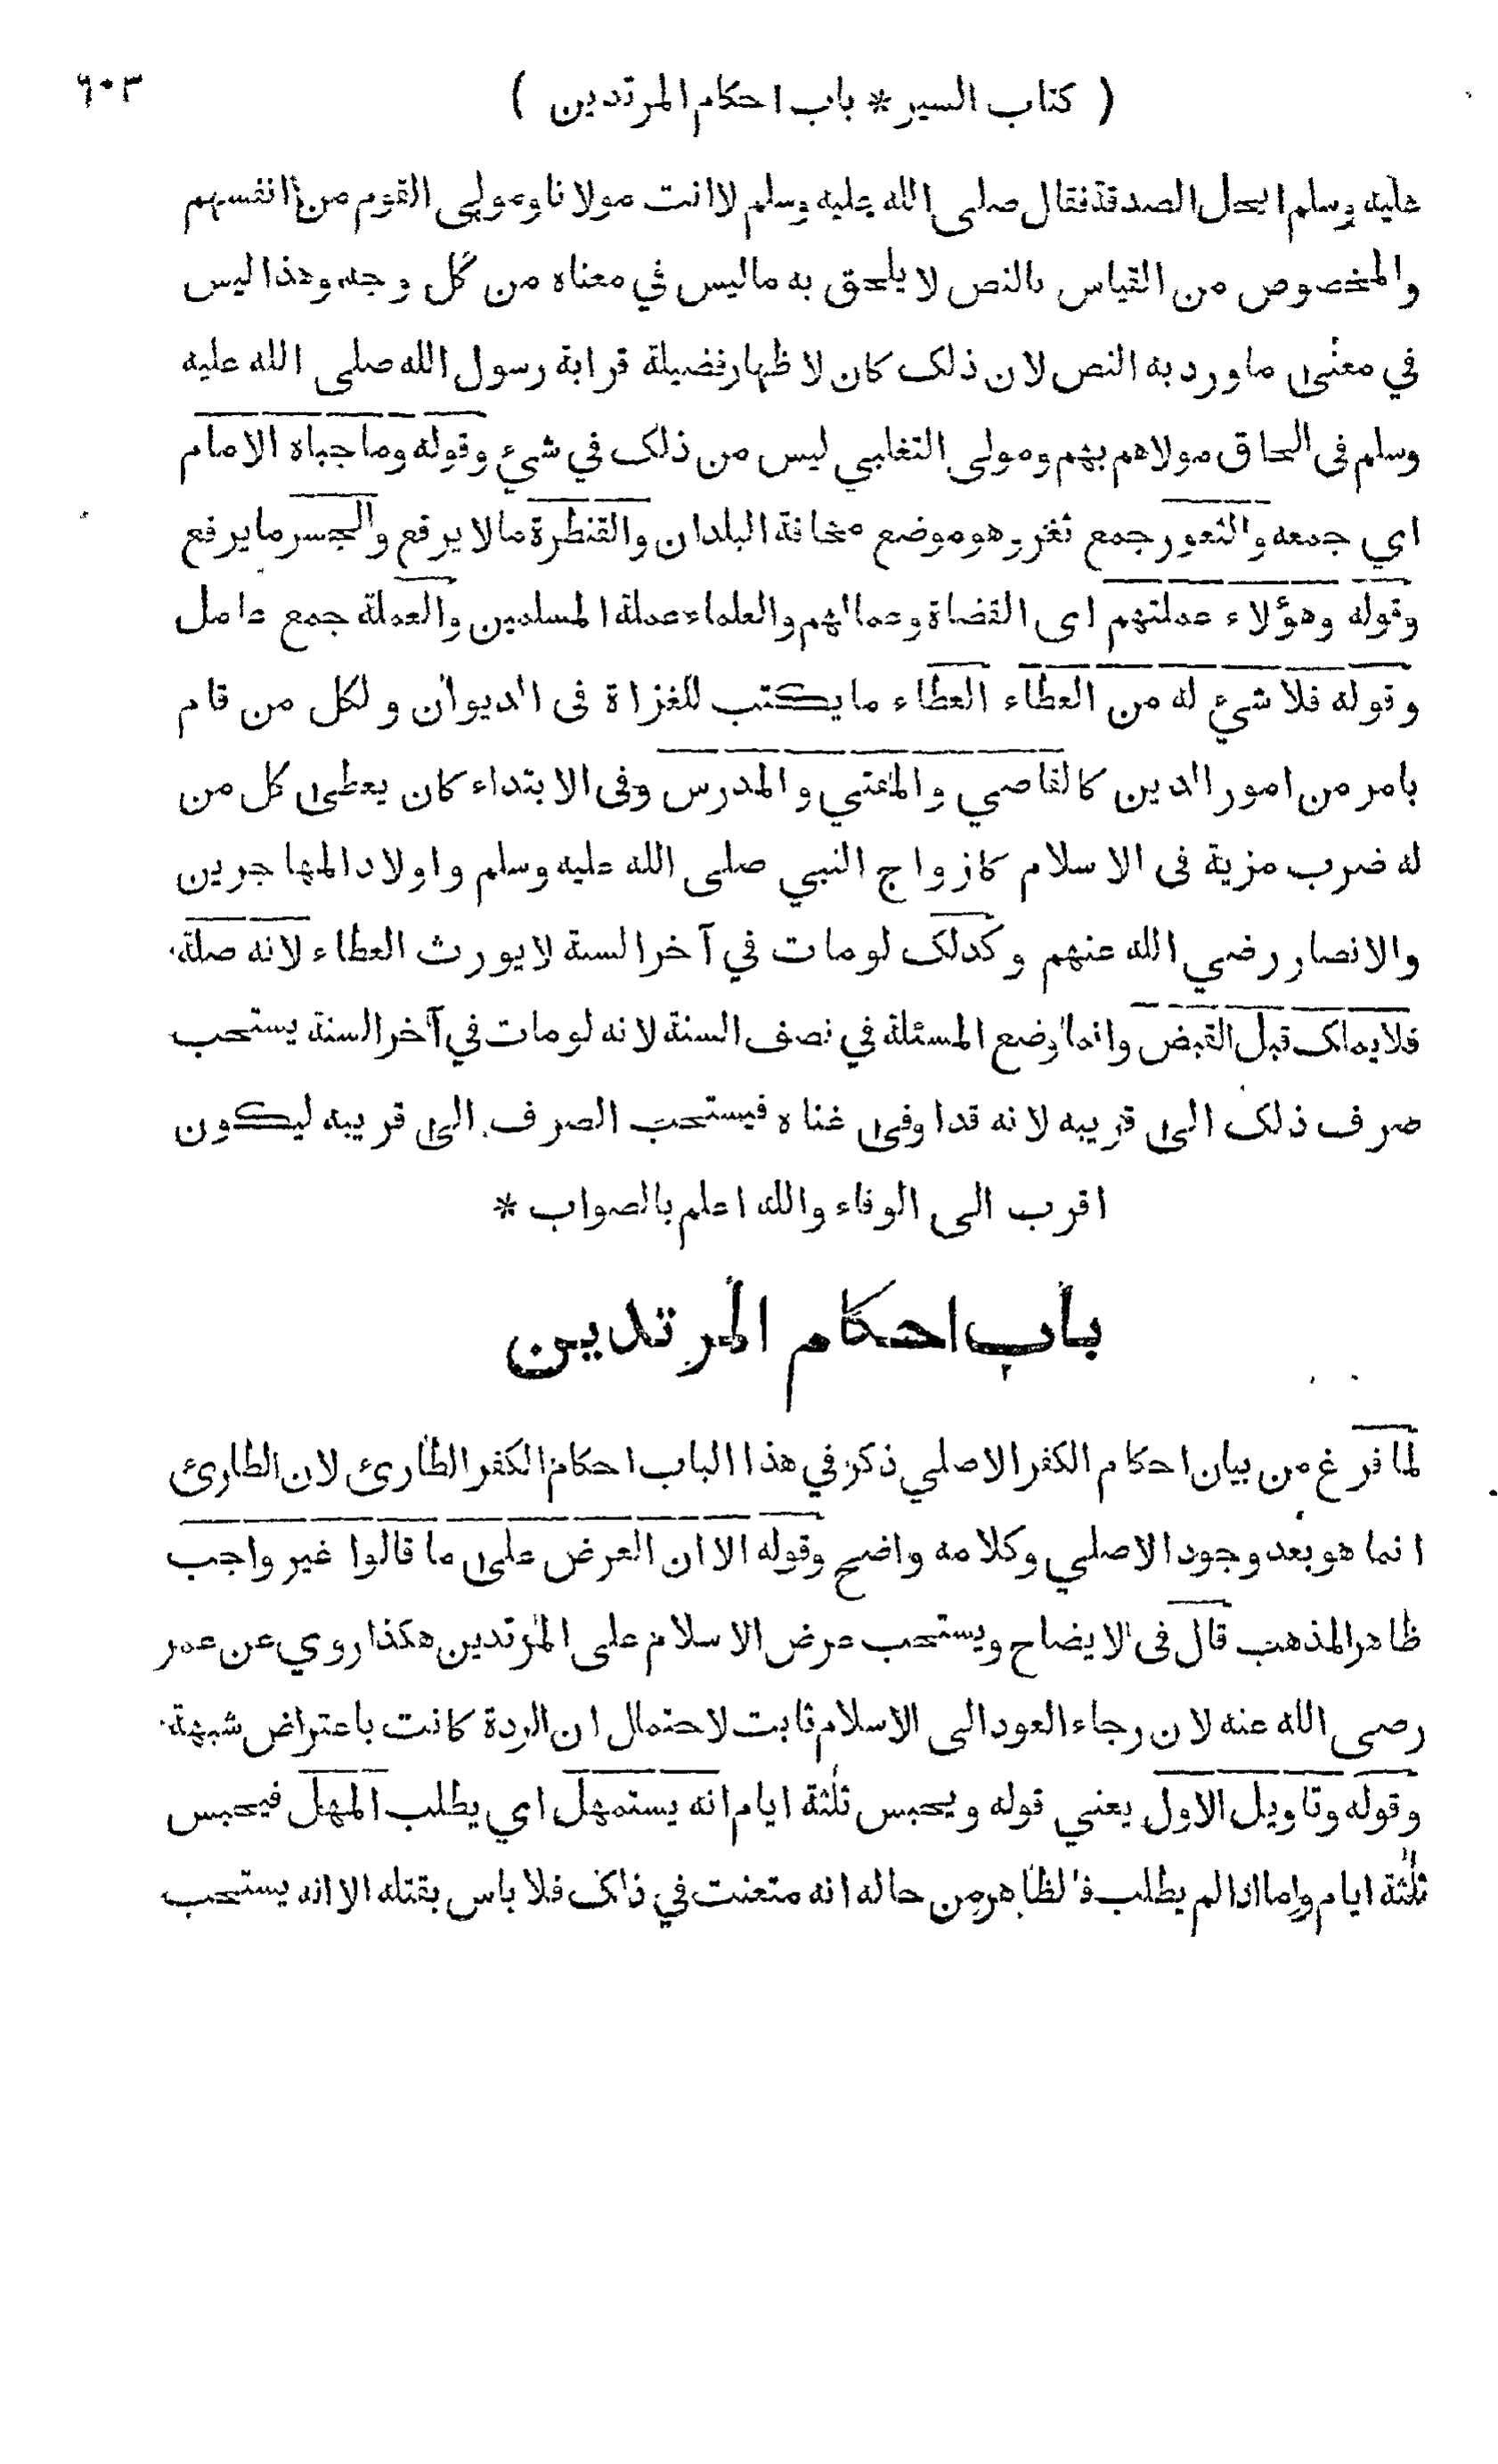 ( كتاب السير * باب احكام المرتدين ) ٦٠٣
عليه وسلم ايحل الصدقة فقال صلى الله عليه وسلم لا انت مولانا ومولى القوم من انفسهم
والمخصوص من القياس بالنص لا يلحق به ما ليس في معناه من كل وجه وهذا ليس
في معنى ما ورد به النص لان ذلك كان لاظهار فضيلة قرابة رسول الله صلى الله عليه
وسلم في الحاق مولاهم بهم ومولى التغلبي ليس من ذلك في شيء وقوله وما جباه الامام
اي جمعه والثغور جمع ثغر وهو موضع مخافة البلدان والقنطرة ما لا يرفع والجسر ما يرفع
وقوله وهؤلاء عملتهم اى القضاة وعمالهم والعلماء عملة المسلمين والعملة جمع عامل
وقوله فلا شيء له من العطاء العطاء ما يكتب للغزاة فى الديوان ولكل من قام
بامر من امور الدين كالقاضي والمفتي والمدرس وفى الابتداء كان يعطى كل من
له ضرب مزية فى الاسلام كازواج النبي صلى الله عليه وسلم واولاد المهاجرين
والانصار رضي الله عنهم وكذلك لو مات في آخر السنة لا يورث العطاء لانه صلة
فلا يملك قبل القبض وانما وضع المسئلة في نصف السنة لانه لو مات في آخر السنة يستحب
صرف ذلك الى قريبه لانه قد اوفى غناه فيستحب الصرف الى قريبه ليكون
اقرب الى الوفاء والله اعلم بالصواب *
باب احكام المرتدين
لما فرغ من بيان احكام الكفر الاصلي ذكر في هذا الباب احكام الكفر الطارئ لان الطارئ
انما هو بعد وجود الاصلي وكلامه واضح وقوله الا ان العرض على ما قالوا غير واجب
ظاهر المذهب قال فى الايضاح ويستحب عرض الاسلام على المرتدين هكذا روي عن عمر
رضى الله عنه لان رجاء العود الى الاسلام ثابت لاحتمال ان الردة كانت باعتراض شبهة
وقوله وتاويل الاول يعني قوله ويحبس ثلثة ايام انه يستمهل اي يطلب المهل فيحبس
ثلثة ايام واما اذا لم يطلب فالظاهر من حاله انه متعنت في ذلك فلا باس بقتله الا انه يستحب